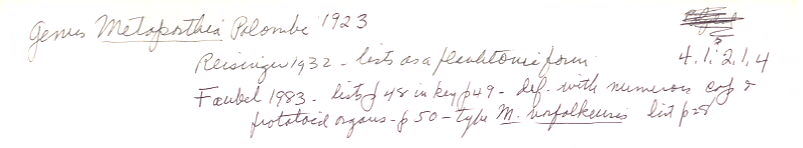 Genus Metaposthia Palombi 1923
4.1.2.1.4
Reisinger 1932 - lists as a form
Faubel 1983 - lists p 48 in key p 49 - def. with numerous cop &
prostatoid organs - p 50 - type M. norfolkensis list p